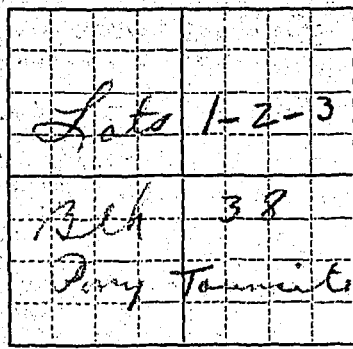 Lots 1-2-3
Blk 38
Townsite